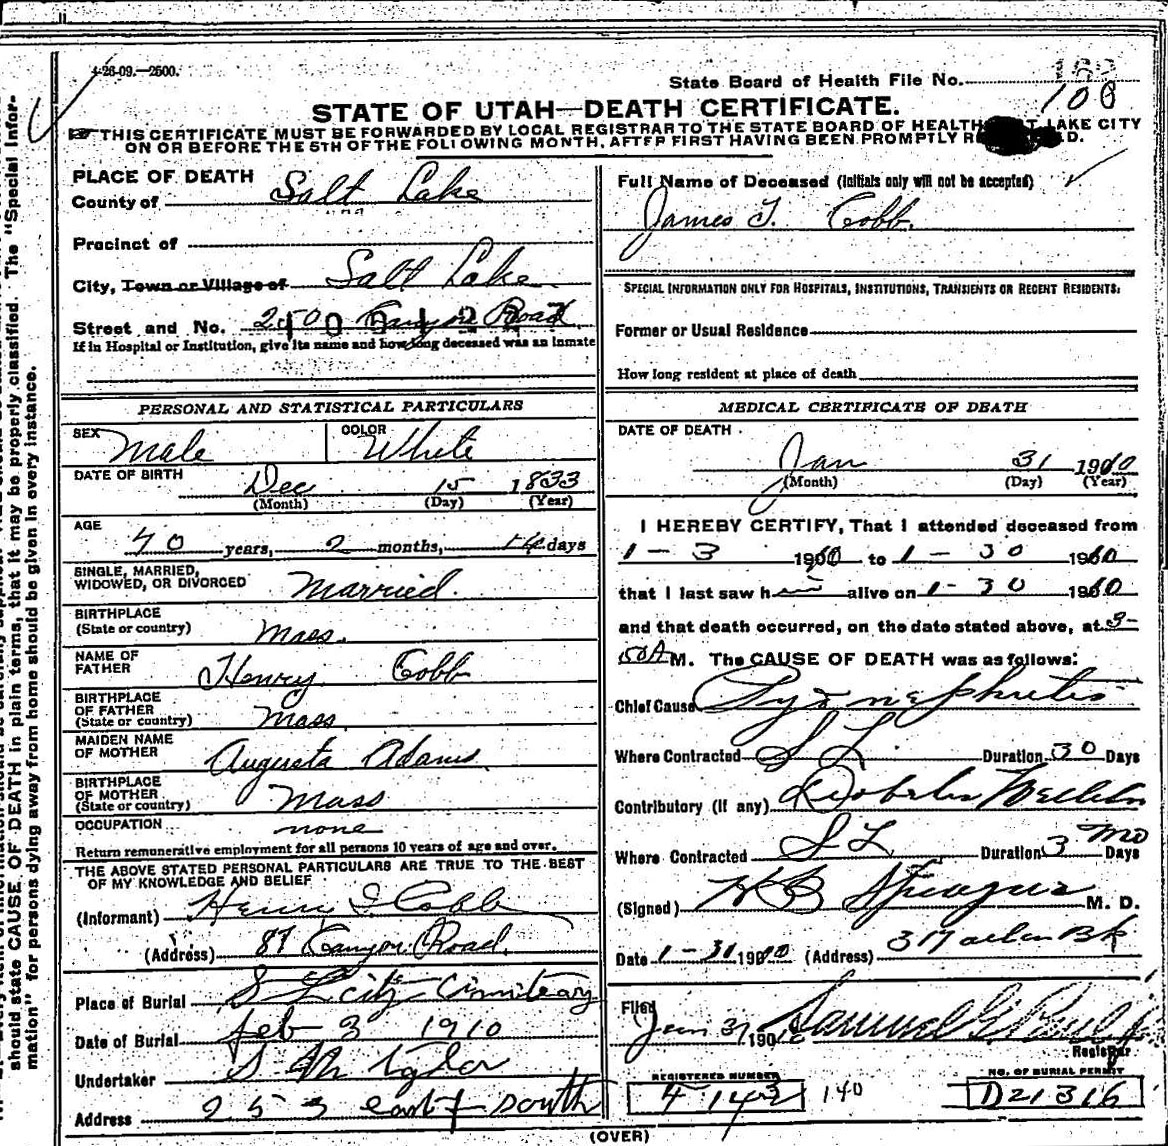 4-26-09.—2500.
State Board of Health File No. 100
STATE OF UTAH—DEATH CERTIFICATE.
THIS CERTIFICATE MUST BE FORWARDED BY LOCAL REGISTRAR TO THE STATE BOARD OF HEALTH LAKE CITY
ON OR BEFORE THE 5TH OF THE FOLLOWING MONTH, AFTER FIRST HAVING BEEN PROMPTLY
PLACE OF DEATH
County of Salt Lake
Precinct of
City, Town or Village of Salt Lake
Street and No. Canyon Road
If in Hospital or Institution, give its name and how long deceased was an inmate
PERSONAL AND STATISTICAL PARTICULARS
SEX Male COLOR White
DATE OF BIRTH Dec 15 1833
(Month) (Day) (Year)
AGE
years, 2 months, days
SINGLE, MARRIED,
WIDOWED, OR DIVORCED Married.
BIRTHPLACE
(State or country) Mass.
NAME OF
FATHER Henry Cobb
BIRTHPLACE
OF FATHER
(State or country) Mass
MAIDEN NAME
OF MOTHER Augusta Adams.
BIRTHPLACE
OF MOTHER
(State or country) Mass
OCCUPATION none
Return remunerative employment for all persons 10 years of age and over.
THE ABOVE STATED PERSONAL PARTICULARS ARE TRUE TO THE BEST
OF MY KNOWLEDGE AND BELIEF
(Informant) Henry I Cobb
(Address) 87 Canyon Road.
Place of Burial S L city Cimiteary
Date of Burial Feb 3 1910
Undertaker S M Taylor
Address 253 east f south
Full Name of Deceased (Initials only will not be accepted)
James T. Cobb.
SPECIAL INFORMATION ONLY FOR HOSPITALS, INSTITUTIONS, TRANSIENTS OR RECENT RESIDENTS:
Former or Usual Residence
How long resident at place of death
MEDICAL CERTIFICATE OF DEATH
DATE OF DEATH
Jan 31 1910
(Month) (Day) (Year)
I HEREBY CERTIFY, That I attended deceased from
1-3 1910 to 1-30 1910
that I last saw him alive on 1-30 1910
and that death occurred, on the date stated above, at 3-
50 A M. The CAUSE OF DEATH was as follows:
Chief Cause Pyonephritis
Where Contracted S L. Duration 30 Days
Contributory (if any)
Where Contracted S L Duration 3 Mo Days
(Signed) H B Sprague M. D.
Date 1-31 1910 (Address)
Filed
Jan 31, 1910 Samuel G. Paul
Registrar
REGISTERED NUMBER
140
NO. OF BURIAL PERMIT
D21316
(OVER)
should state CAUSE OF DEATH in plain terms, that it may be properly classified. The "Special Infor-
mation" for persons dying away from home should be given in every instance.